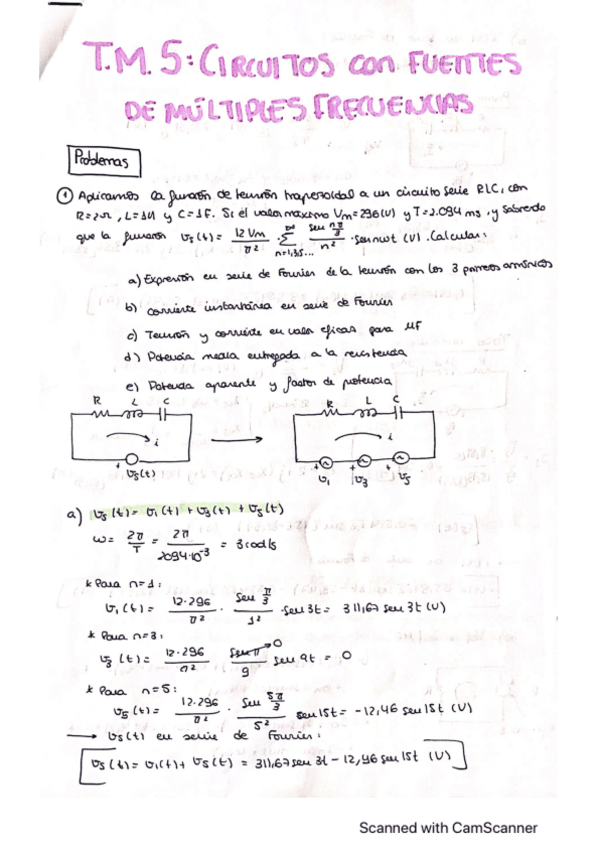 T.M. 5: CIRCUITOS CON FUENTES
DE MÚLTIPLES FRECUENCIAS
Problemas
① Aplicamos la función de tensión trapezoidal a un circuito serie RLC, con
R=2Ω, L=1H y C=1F. Si el valor máximo Vm=296(V) y T=2.094 ms, y sabiendo
que la función υs(t) = 12 Vm / π² · Σ n=1,3,5... ∞ sen nπ/3 / n² · sen nωt (V). Calcular:
a) Expresión en serie de Fourier de la tensión con los 3 primeros armónicos
b) corriente instantánea en serie de Fourier
c) Tensión y corriente en valor eficaz para
d) Potencia media entregada a la resistencia
e) Potencia aparente y factor de potencia
R L C R L C
i i
+ υs(t) + υ1 + υ3 + υ5
a) υs(t) = υ1(t) + υ3(t) + υ5(t)
ω = 2π/T = 2π / 2094·10⁻³ = 3 rad/s
* Para n=1:
υ1(t) = 12·296 / π² · sen π/3 / 1² · sen 3t = 311,67 sen 3t (V)
* Para n=3:
υ3(t) = 12·296 / π² · sen π / 9 sen 9t = 0
0
* Para n=5:
υ5(t) = 12·296 / π² · sen 5π/3 / 5² sen 15t = -12,46 sen 15t (V)
→ υs(t) en serie de Fourier:
υs(t) = υ1(t) + υ5(t) = 311,67 sen 3t - 12,46 sen 15t (V)
Scanned with CamScanner